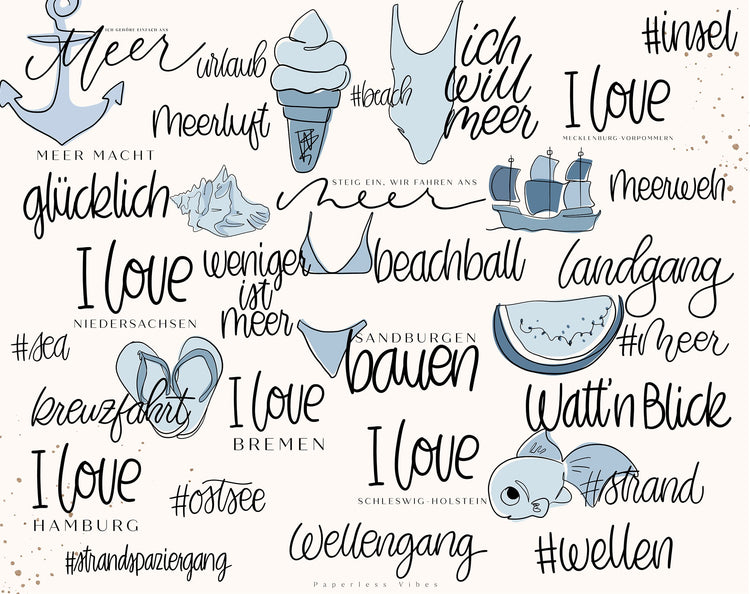 ICH GEHÖRE EINFACH ANS
Meer
MEER MACHT
urlaub
meerluft
#beach
ich
will
meer
#insel
I love
MECKLENBURG-VORPOMMERN
glücklich
STEIG EIN, WIR FAHREN ANS
meer
meerweh
I love
NIEDERSACHSEN
weniger
ist
meer
beachball
landgang
#sea
kreuzfahrt
I love
BREMEN
SANDBURGEN
bauen
#meer
Watt'n Blick
I love
HAMBURG
#ostsee
I love
SCHLESWIG-HOLSTEIN
#strand
#strandspaziergang
Wellengang
#wellen
Paperless Vibes